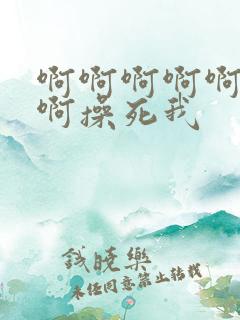 啊啊啊啊啊
啊操死我
钱晓乐
未经同意禁止转载